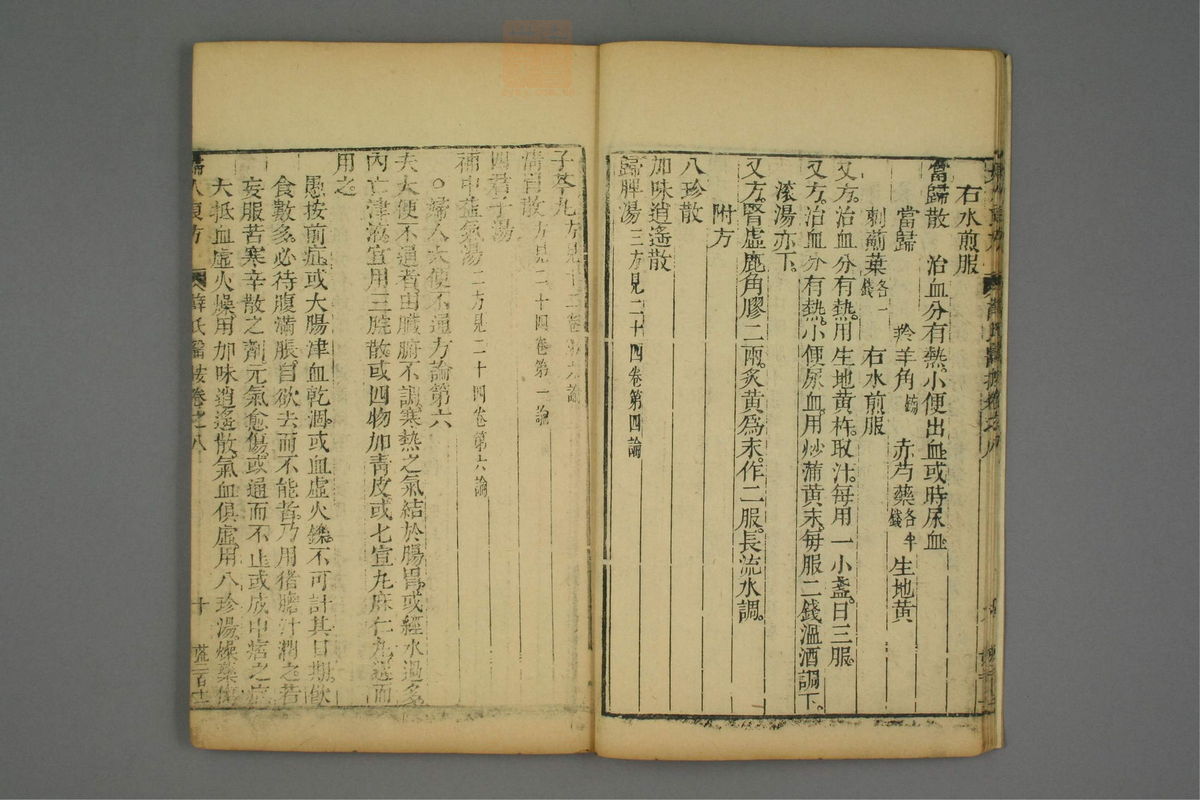 右水煎服
當歸散 治血分有熱小便出血或時尿血
當歸 羚羊角鎊 赤芍藥各半錢 生地黃
刺薊葉各一錢 右水煎服
又方治血分有熱用生地黃杵取汁每用一小盞日三服
又方治血分有熱小便尿血用炒蒲黃末每服二錢溫酒調下
滾湯亦下
又方腎虛鹿角膠二兩炙黃爲末作二服長流水調
附方
八珍散
加味逍遙散
歸脾湯三方見二十四卷第四論
子芩丸方見十三卷第六論
清胃散方見二十四卷第一論
四君子湯
補中益氣湯二方見二十四卷第六論
○婦人大便不通方論第六
夫大便不通者由臟腑不調寒熱之氣結於腸胃或經水過多
內亡津液宜用三脘散或四物加青皮或七宣丸麻仁丸選而
用之
愚按前症或大腸津血乾涸或血虛火爍不可計其日期飲
食數多必待腹滿脹自欲去而不能者乃用猪膽汁潤之若
妄服苦寒辛散之劑元氣愈傷或通而不止或成中痞之症
大抵血虛火燥用加味逍遙散氣血俱虛用八珍湯燥藥傷
婦人良方 薛氏醫按卷之八 十